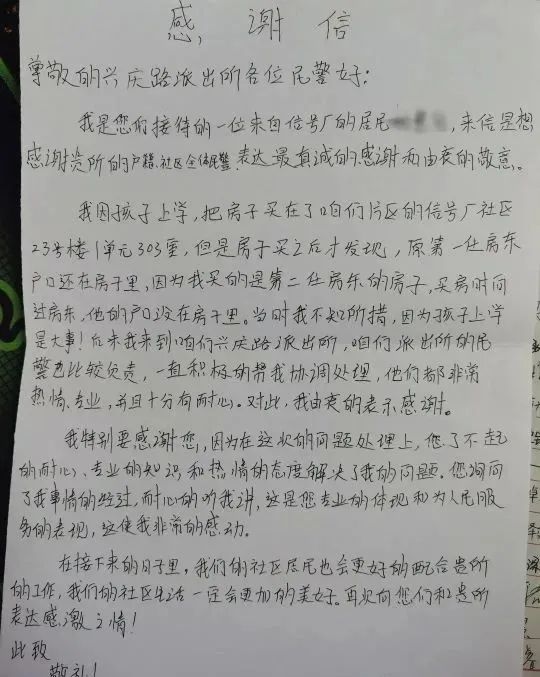 感谢信
尊敬的兴庆路派出所各位民警好：
我是您们接待的一位来自信号厂的居民，来信是想
感谢贵所的户籍、社区全体民警，表达最真诚的感谢和由衷的敬意。
我因孩子上学，把房子买在了咱们片区的信号厂社区
23号楼1单元303室，但是房子买之后才发现，原第一任房东
户口还在房子里，因为我买的是第二任房东的房子，买房时问
过房东，他的户口没在房子里。当时我不知所措，因为孩子上学
是大事！后来我来到咱们兴庆路派出所，咱们派出所的民
警也比较负责，一直积极的帮我协调处理，他们都非常
热情、专业，并且十分有耐心。对此，我由衷的表示感谢。
我特别要感谢您，因为在这次的问题处理上，您了不起
的耐心、专业的知识和热情的态度解决了我的问题。您询问
了我事情的经过，耐心的听我讲，这是您专业的体现和为人民服
务的表现，这使我非常的感动。
在接下来的日子里，我们的社区居民也会更好的配合贵所
的工作，我们的社区生活一定会更加的美好。再次向您们和贵所
表达感激之情！
此致
敬礼！